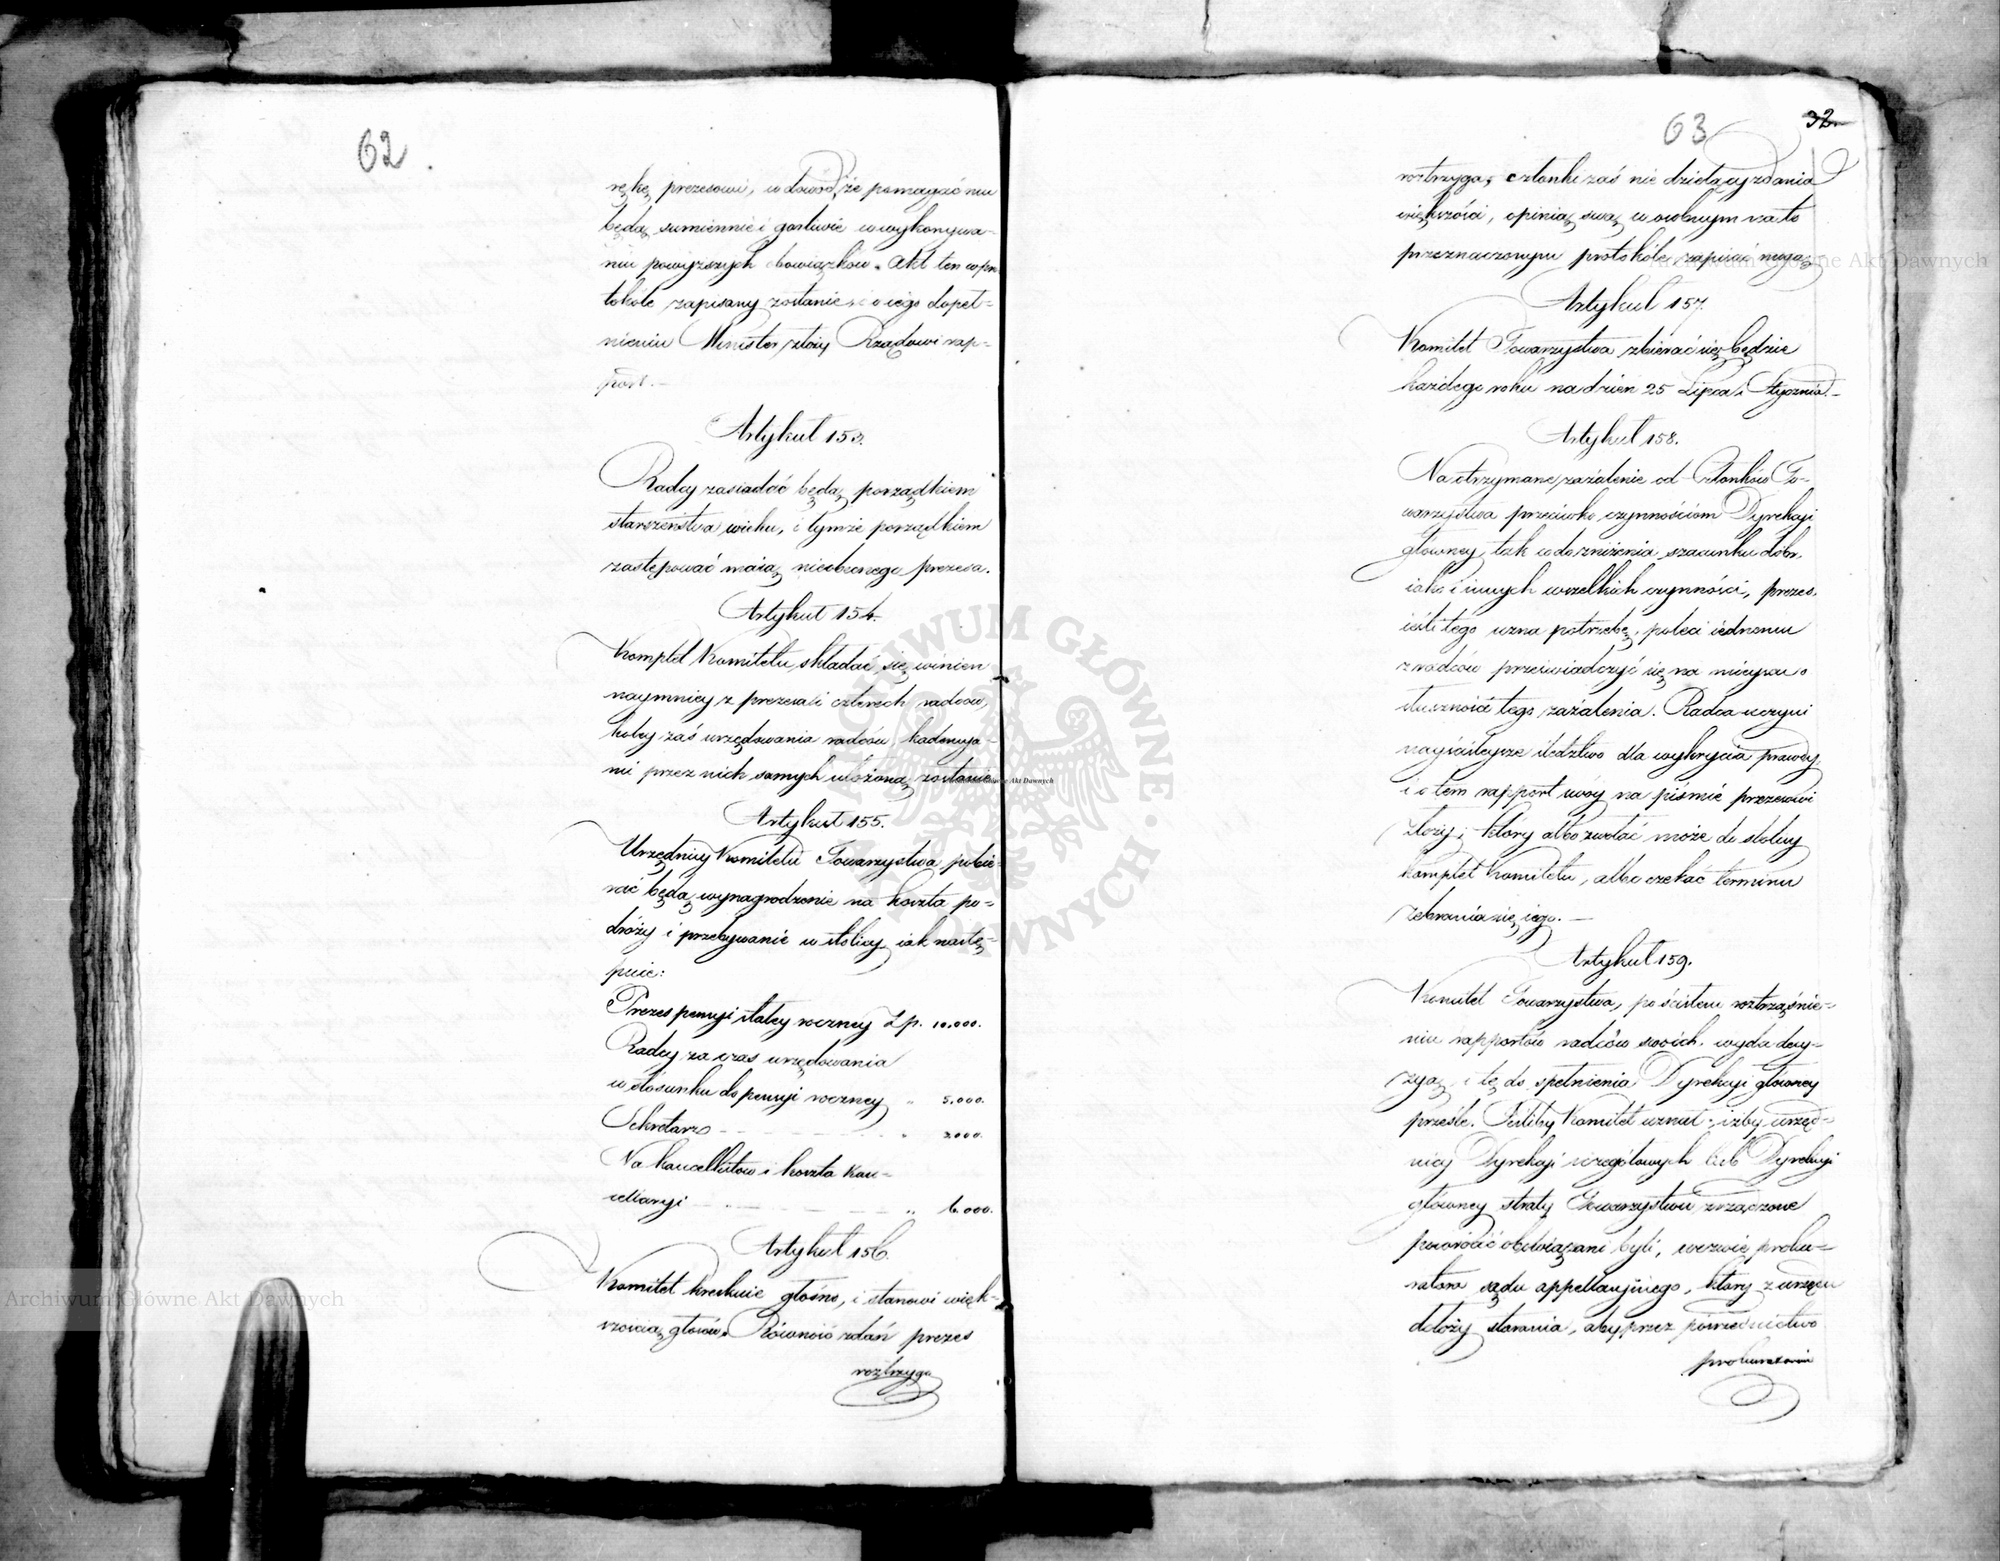 62.
rękę prezesowi, w dowód, że pomagać mu
będą sumiennie i gorliwie w wykonywa-
niu powyższych obowiązków. Akt ten w pro
tokóle zapisany zostanie i o iego dopeł-
nieniu Minister złoży Rządowi rap-
port.—
Artykuł 153.
Radcy zasiadać będą porządkiem
starszeństwa wieku, i tymże porządkiem
zastępować maią nieobecnego prezesa.
Artykuł 154.
Komplet Komitetu składać się winien
naymniey z prezesa i czterech radców,
koley zaś urzędowania radców kadencya-
mi przez nich samych ułożoną zostanie
Artykuł 155.
Urzędnicy Komitetu Towarzystwa pobie-
rać będą wynagrodzenie na koszta po-
dróży i przebywanie w stolicy iak nastę-
puie:
Prezes pensyi stałey roczney Zp. 10.000.
Radcy za czas urzędowania
w stosunku do pensyi roczney " 5.000.
Sekretarz — — — — " 2000.
Na kancellistow i koszta kan-
cellaryi — — — — " 6.000.
Artykuł 156.
Komitet kreskuie głośno, i stanowi więk-
szością głosów. Równość zdań prezes
roztrzyga
63
32.
roztrzyga, członki zaś nie dzielący zdania
większości, opinią swą w osobnym na to
przeznaczonym protokóle zapisać mogą
Artykuł 157.
Komitet Towarzystwa zbierać się będzie
każdego roku na dzień 25 Lipca i Stycznia.—
Artykuł 158.
Na otrzymane zażalenie od Członków To-
warzystwa przeciwko czynnościom Dyrekcyi
główney, tak co do zniżenia szacunku dóbr,
iako i innych wszelkich czynności, prezes,
ieśli tego uzna potrzebę, poleci iednemu
z radców przeświadczyć się na mieyscu o
słuszności tego zażalenia. Radca uczyni
nayściśleysze śledztwo dla wykrycia prawdy,
i o tem rapport swóy na piśmie prezesowi
złoży, który albo zwołać może do stolicy
komplet Komitetu, albo czekać terminu
zebrania się iego.—
Artykuł 159.
Komitet Towarzystwa, po ścisłem roztrząśnie-
niu rapportów radców swoich, wyda decy-
zyą i tę do spełnienia Dyrekcyi główney
prześle. Jeśliby Komitet uznał, iżby urzęd-
nicy Dyrekcyi szczegółowych lub Dyrekcyi
główney straty Towarzystwu zrządzone
powrócić obowiązani byli, wezwie proku-
ratora sądu appellacyinego, który z urzędu
dołoży starania, aby przez pośrednictwo
prokuratorów
Archiwum Główne Akt Dawnych
Archiwum Główne Akt Dawnych
ARCHIWUM GŁÓWNE AKT DAWNYCH